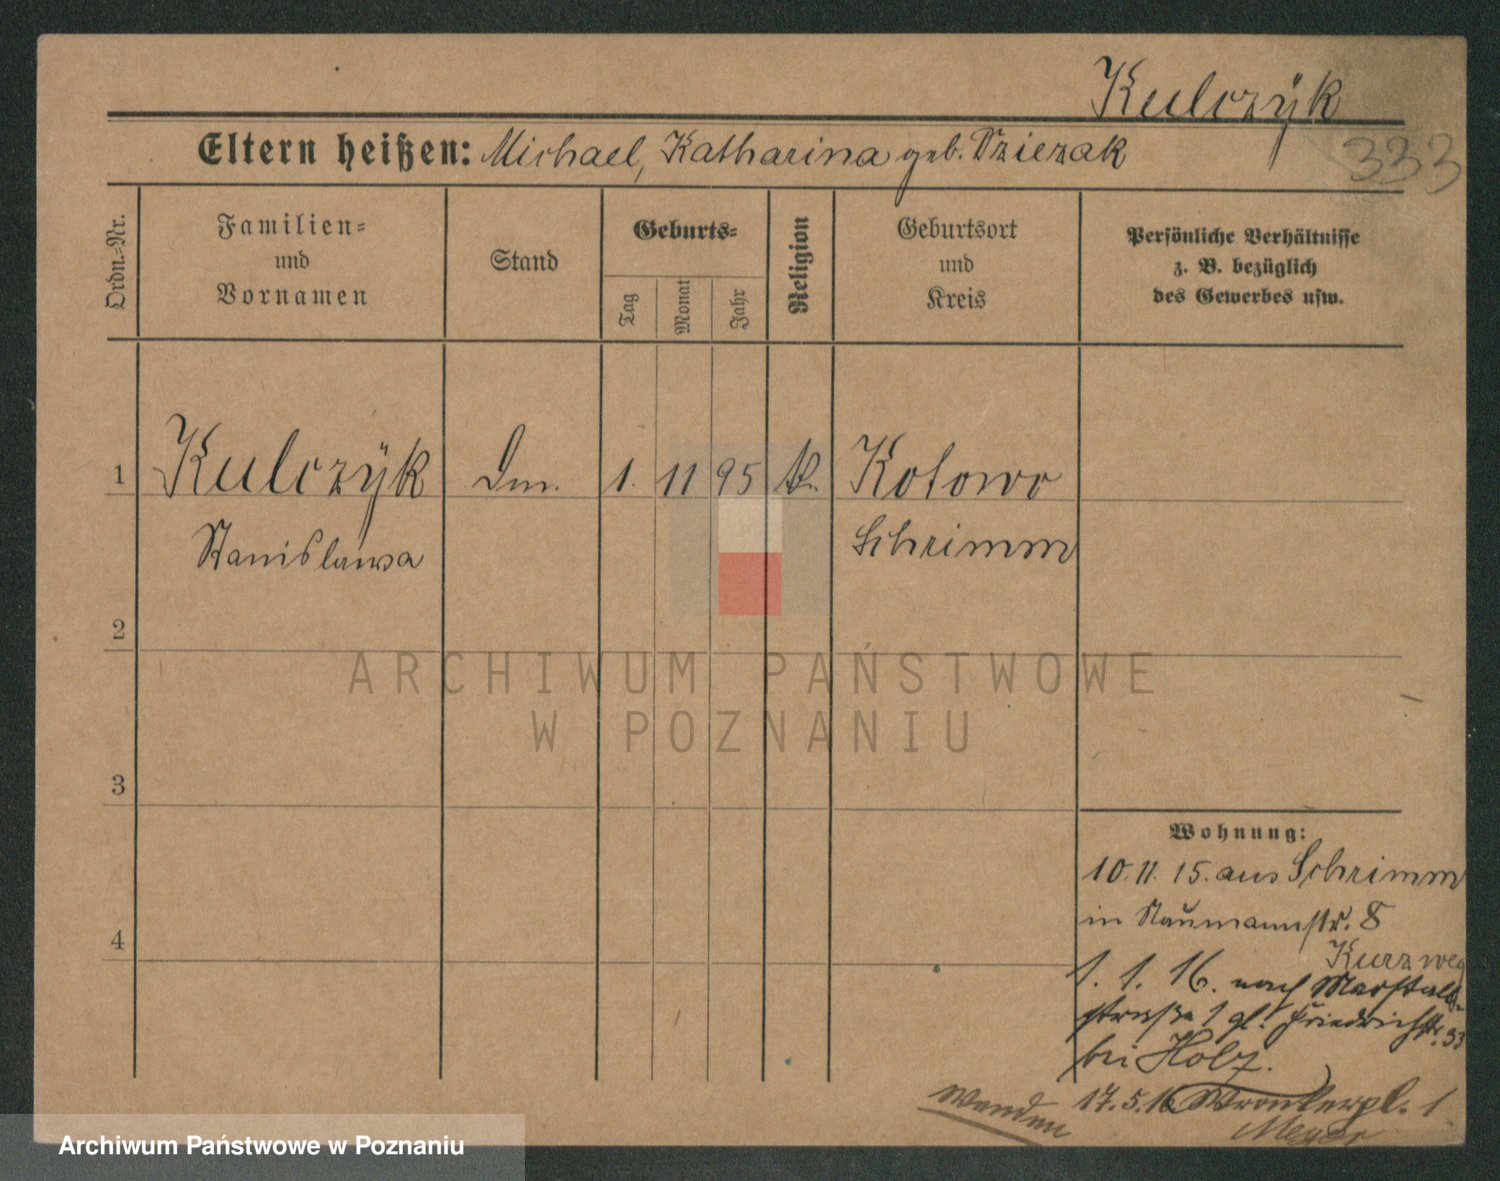 Kulczÿk
333
Eltern heißen: Michael, Katharina geb. Dziezak
Ordn.-Nr.
Familien-
und
Vornamen
Stand
Geburts-
Tag
Monat
Jahr
Religion
Geburtsort
und
Kreis
Persönliche Verhältnisse
z. B. bezüglich
des Gewerbes usw.
1 Kulczÿk 1. 11 95 k. Kotowo
Stanislawa Schrimm
2
3
4
ARCHIWUM PAŃSTWOWE
W POZNANIU
Wohnung:
10. 11. 15. aus Schrimm
in Naumannstr. 8
Kurzweg
1. 1. 16. nach Marstall-
straße 1 gl. Friedrichstr. 33
bei Holz.
17. 5. 16 Wronkerpl. 1
Meyer
Wenden
Archiwum Państwowe w Poznaniu